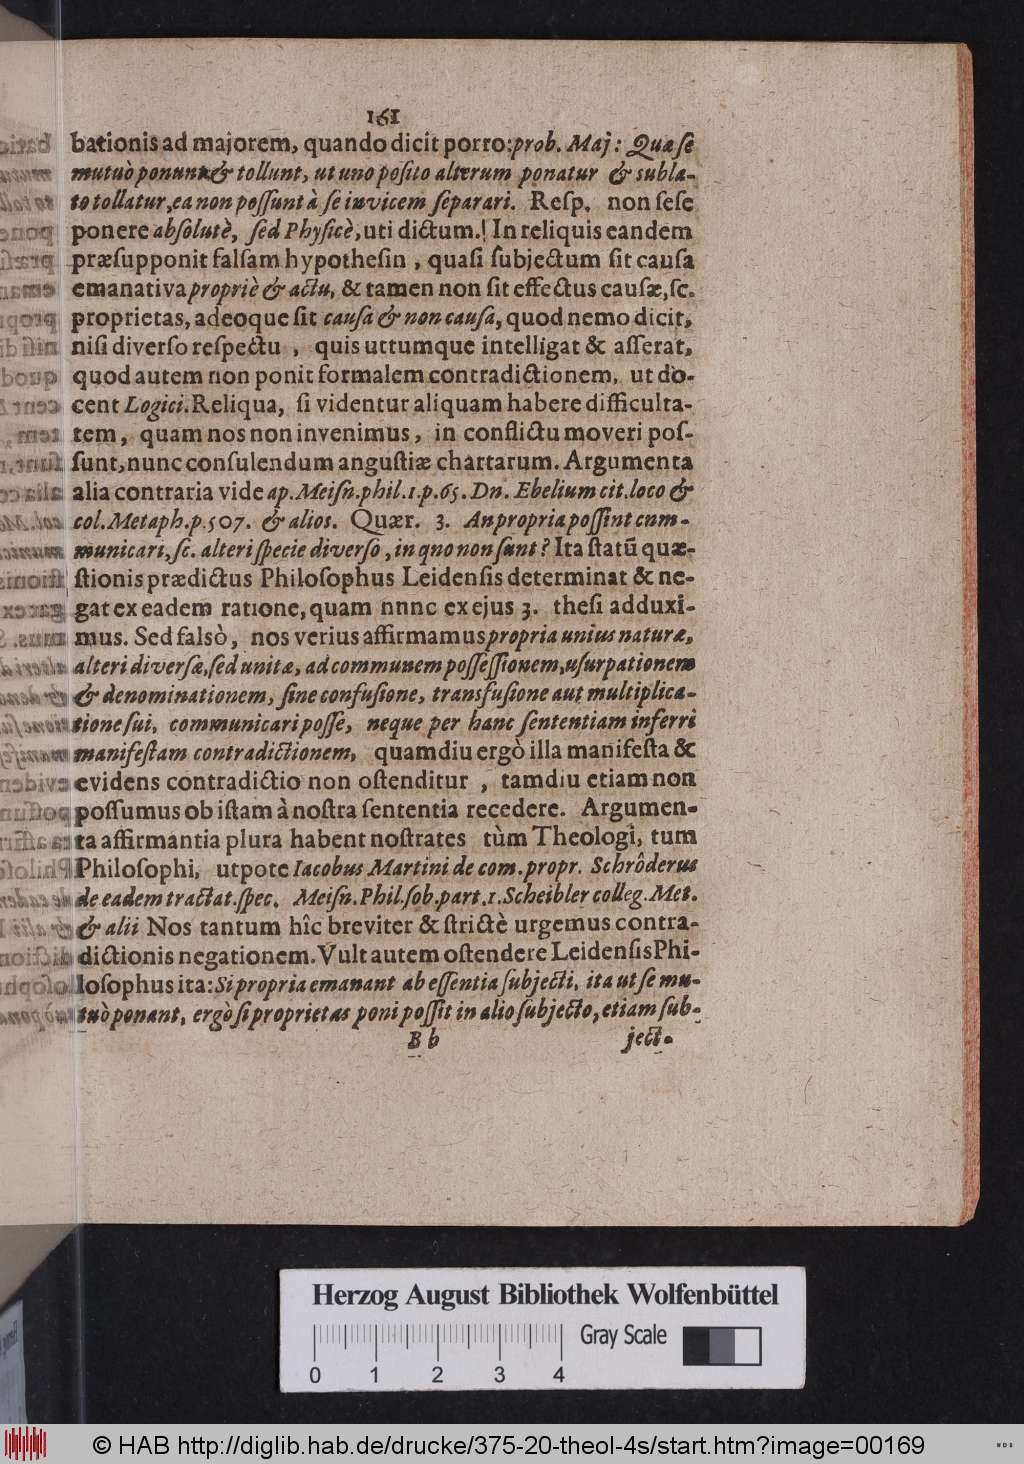 161
bationis ad majorem, quando dicit porro: prob. Maj: Quæ ſe
mutuò ponunt & tollunt, ut uno poſito alterum ponatur & subla-
to tollatur, ea non poſſunt à ſe invicem ſeparari. Reſp. non ſeſe
ponere abſolutè, ſed Phyſicè, uti dictum.! In reliquis eandem
præſupponit falſam hypotheſin, quaſi ſubjectum ſit cauſa
emanativa propriè & actu, & tamen non ſit effectus cauſæ, ſc.
proprietas, adeoque ſit cauſa & non cauſa, quod nemo dicit,
niſi diverſo reſpectu, quis utrumque intelligat & aſſerat,
quod autem non ponit formalem contradictionem, ut do-
cent Logici. Reliqua, ſi videntur aliquam habere difficulta-
tem, quam nos non invenimus, in conflictu moveri poſ-
ſunt, nunc conſulendum anguſtiæ chartarum. Argumenta
alia contraria vide ap. Meiſn. phil. 1. p. 65. Dn. Ebelium cit. loco &
col. Metaph. p. 507. & alios. Quær. 3. An propria poſſint com-
municari, ſc. alteri ſpecie diverſo, in quo non ſunt? Ita ſtatū quæ-
ſtionis prædictus Philoſophus Leidenſis determinat & ne-
gat ex eadem ratione, quam nnnc ex ejus 3. theſi adduxi-
mus. Sed falsò, nos verius affirmamus propria unius naturæ,
alteri diverſæ, ſed unitæ, ad communem poſſeſſionem, uſurpationem
& denominationem, ſine confuſione, transfuſione aut multiplica-
tione ſui, communicari poſſe, neque per hanc ſententiam inferri
manifeſtam contradictionem, quamdiu ergò illa manifeſta &
evidens contradictio non oſtenditur, tamdiu etiam non
poſſumus ob iſtam à noſtra ſententia recedere. Argumen-
ta affirmantia plura habent noſtrates tùm Theologi, tum
Philoſophi, utpote Iacobus Martini de com. propr. Schrôderus
de eadem tractat. ſpec. Meiſn. Phil. ſob. part. 1. Scheibler colleg. Met.
& alii Nos tantum hîc breviter & ſtrictè urgemus contra-
dictionis negationem. Vult autem oſtendere Leidenſis Phi-
loſophus ita: Si propria emanant ab eſſentia ſubjecti, ita ut ſe mu-
tuò ponant, ergò ſi proprietas poni poſſit in alio ſubjecto, etiam ſub-
B b ject-
Herzog August Bibliothek Wolfenbüttel
Gray Scale
0 1 2 3 4
© HAB http://diglib.hab.de/drucke/375-20-theol-4s/start.htm?image=00169